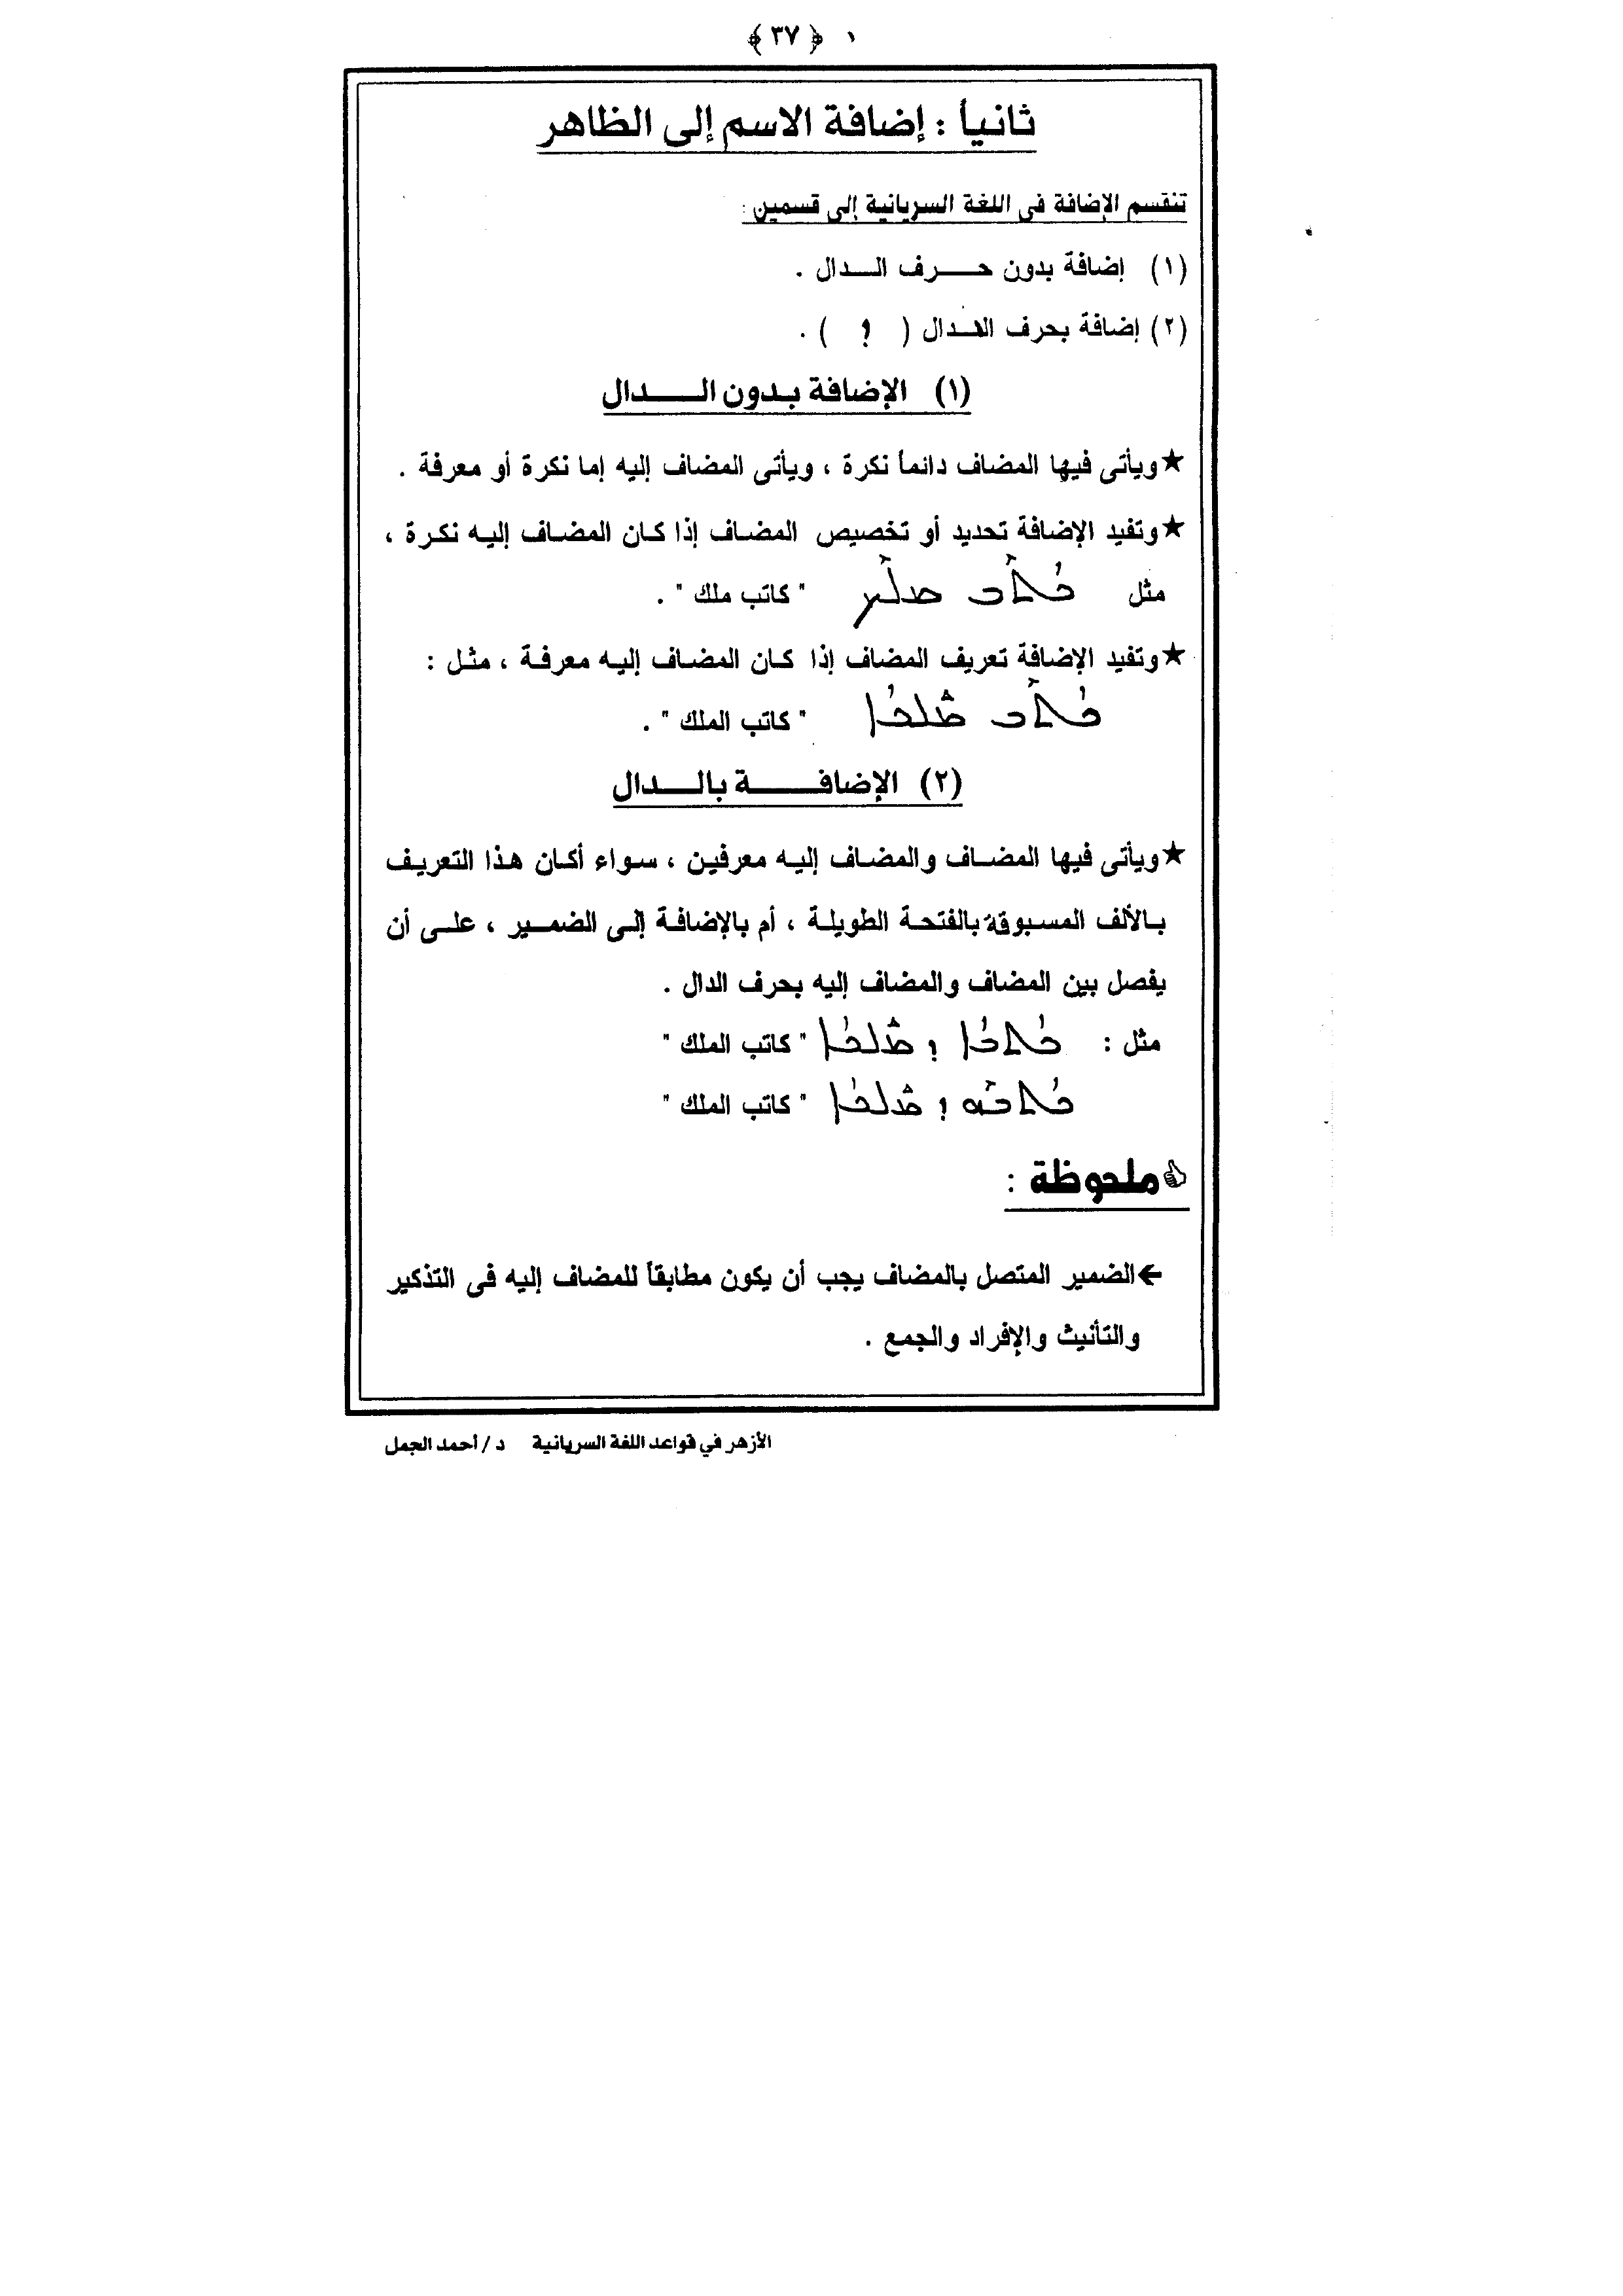 ﴿ ٣٧ ﴾
ثانياً : إضافة الاسم إلى الظاهر
تنقسم الإضافة فى اللغة السريانية إلى قسمين :
(١) إضافة بدون حـــرف الـــدال .
(٢) إضافة بحرف الـدال ( ܕ ) .
(١) الإضافة بـدون الـــــدال
★ ويأتى فيها المضاف دائماً نكرة ، ويأتى المضاف إليه إما نكرة أو معرفة .
★ وتفيد الإضافة تحديد أو تخصيص المضاف إذا كـان المضـاف إليـه نكـرة ،
مثل ܟܳܬܶܒ ܡܠܶܟ " كاتب ملك " .
★ وتفيد الإضافة تعريف المضاف إذا كـان المضـاف إليـه معرفـة ، مثـل :
ܟܳܬܶܒ ܡܰܠܟܳܐ " كاتب الملك " .
(٢) الإضافـــــــة بالـــــدال
★ ويأتى فيها المضـاف والمضـاف إليـه معرفين ، سـواء أكـان هـذا التعريـف
بـالألف المسـبوقة بالفتحـة الطويلـة ، أم بالإضافـة إلـى الضمـير ، علـى أن
يفصل بين المضاف والمضاف إليه بحرف الدال .
مثل : ܟܳܬܒܳܐ ܕ ܡܰܠܟܳܐ " كاتب الملك "
ܟܳܬܒܶܗ ܕ ܡܰܠܟܳܐ " كاتب الملك "
ملحوظة :
← الضمير المتصل بالمضاف يجب أن يكون مطابقاً للمضاف إليه فى التذكير
والتأنيث والإفراد والجمع .
الأزهر في قواعد اللغة السريانية د / أحمد الجمل